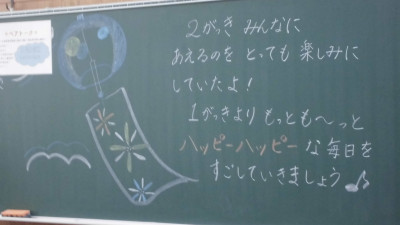 2がっき みんなに
あえるのを とっても 楽しみに
していたよ!
1がっきより もっとも〜っと
ハッピーハッピー な 毎日を
すごしていきましょう♪